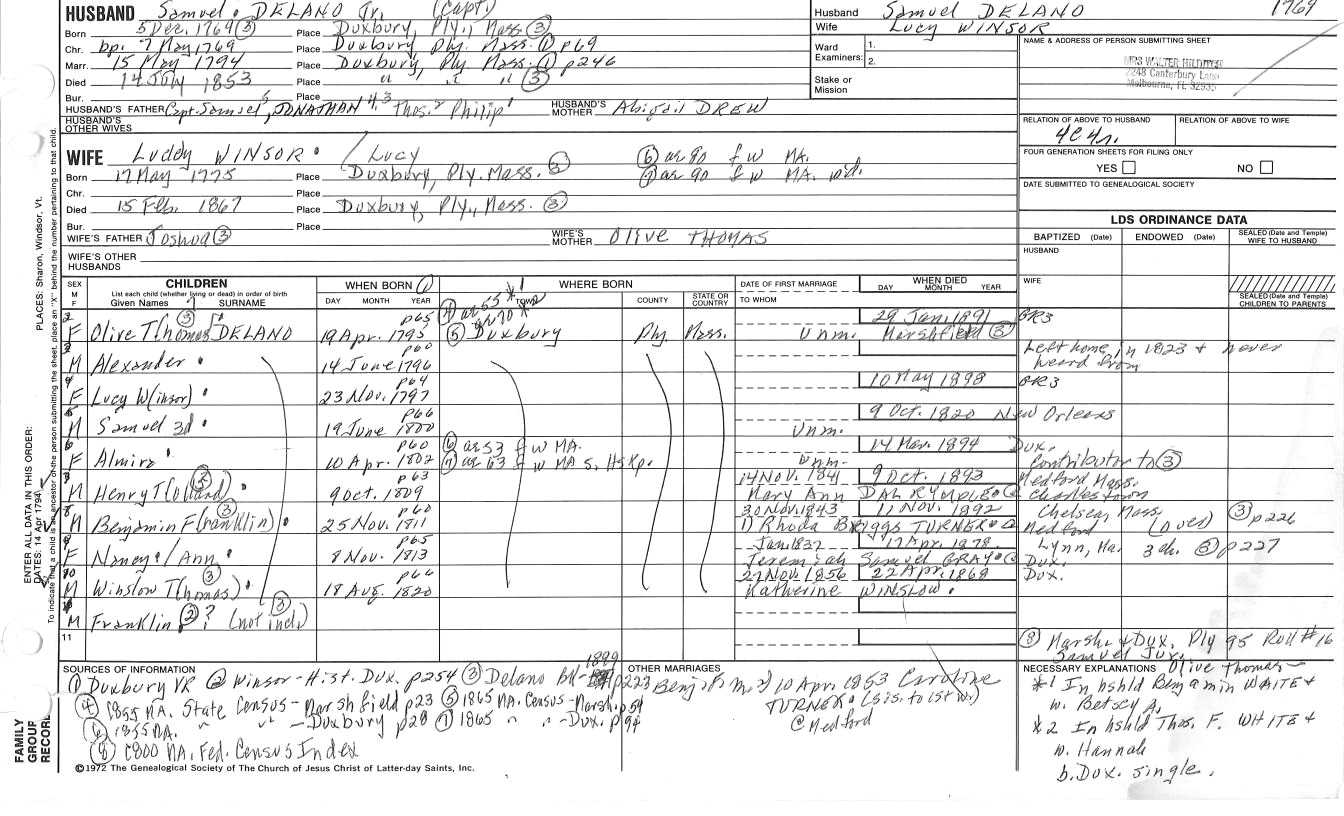 HUSBAND Samuel DELANO Jr. (Capt.) Husband Samuel DELANO 1769
Born 5 Dec. 1769 (3) Place Duxbury, Ply., Mass. (3) Wife Lucy WINSOR
Chr. bp. 7 May 1769 Place Duxbury, Ply. Mass. (1) p69 Ward Examiners: 1. 2.
Marr. 15 May 1794 Place Duxbury, Ply. Mass. (1) p246
Died 14 July 1853 Place " " " (3) Stake or Mission
Bur. Place
NAME & ADDRESS OF PERSON SUBMITTING SHEET
MRS WALTER
2248 Canterbury Lane
Melbourne, FL 32935
HUSBAND'S FATHER Capt. Samuel 5, JONATHAN 4,3 Thos. 2 Philip 1 HUSBAND'S MOTHER Abigail DREW
HUSBAND'S OTHER WIVES
RELATION OF ABOVE TO HUSBAND RELATION OF ABOVE TO WIFE
4C4r.
FOUR GENERATION SHEETS FOR FILING ONLY
YES NO
DATE SUBMITTED TO GENEALOGICAL SOCIETY
WIFE Luddy WINSOR / Lucy (6) ae 80 f w MA.
Born 17 May 1775 Place Duxbury, Ply. Mass. (3) (7) ae 90 f w MA. wid.
Chr. Place
Died 15 Feb. 1867 Place Duxbury, Ply., Mass. (3)
Bur. Place
WIFE'S FATHER Joshua (3) WIFE'S MOTHER Olive THOMAS
WIFE'S OTHER HUSBANDS
LDS ORDINANCE DATA
BAPTIZED (Date) ENDOWED (Date) SEALED (Date and Temple) WIFE TO HUSBAND
HUSBAND
WIFE
SEALED (Date and Temple) CHILDREN TO PARENTS
SEX M F CHILDREN WHEN BORN (1) WHERE BORN DATE OF FIRST MARRIAGE WHEN DIED
List each child (whether living or dead) in order of birth
Given Names SURNAME DAY MONTH YEAR TOWN COUNTY STATE OR COUNTRY TO WHOM DAY MONTH YEAR
(4) ae 65 *1
ae 70 *2
p65 29 Jan. 1891 GR3
F Olive T(homas (3) DELANO 19 Apr. 1795 (5) Duxbury Ply. Mass. Unm. Marshfield (3)
p60 Left home in 1823 & never heard from
M Alexander 14 June 1796
p64 10 May 1898 GR3
F Lucy W(insor) 23 Nov. 1797
p66 9 Oct. 1820 New Orleans
M Samuel 3d 19 June 1800 Unm.
p60 (6) ae 53 f w MA. 14 Mar. 1894 Dux.
F Almira 10 Apr. 1802 (7) ae 63 f w MA S. Hskp. Unm. Contributor to (3)
p63 14 Nov. 1841 9 Oct. 1893 Medford Mass.
M Henry T(olland) 9 Oct. 1809 Mary Ann DALRYMPLE Charlestown
p60 30 Nov. 1843 11 Nov. 1892 Chelsea, Mass. (3) p226
M Benjamin F(ranklin) (3) 25 Nov. 1811 1) Rhoda BRIGGS TURNER Medford
p65 Jan. 1837 17 Apr. 1878 Lynn, Ma. 3 ch. (3) p227
F Nancy / Ann 8 Nov. 1813 Jeremiah Samuel GRAY Dux.
p66 27 Nov. 1856 22 Apr. 1868 Dux.
M Winslow T(homas) (3) 18 Aug. 1820 Katherine WINSLOW
M Franklin (2)? (not in (3))
11
(8) Marsh. & Dux. Ply 95 Roll #16
Samuel Jur.
SOURCES OF INFORMATION
(1) Duxbury VR (2) Winsor-Hist. Dux. p254 (3) Delano 1899 p223
(4) 1855 MA. State Census - Marshfield p23 (5) 1865 MA. Census - Marsh. p54
(6) 1855 MA. " " - Duxbury p28 (7) 1865 " " - Dux. p94
(8) 1800 MA. Fed. Census Index
OTHER MARRIAGES
Benj. F. m 2) 10 Apr. 1853 Caroline
TURNER (sis. to 1st w.)
@ Medford
NECESSARY EXPLANATIONS Olive Thomas -
*1 In hshld Benjamin WAITE &
w. Betsey A.
*2 In hshld Thos. F. WHITE &
w. Hannah
b. Dux. single.
©1972 The Genealogical Society of The Church of Jesus Christ of Latter-day Saints, Inc.
FAMILY GROUP RECORD
ENTER ALL DATA IN THIS ORDER:
DATES: 14 Apr 1794
PLACES: Sharon, Windsor, Vt.
To indicate that a child is an ancestor of the person submitting the sheet, place an "X" behind the number pertaining to that child.